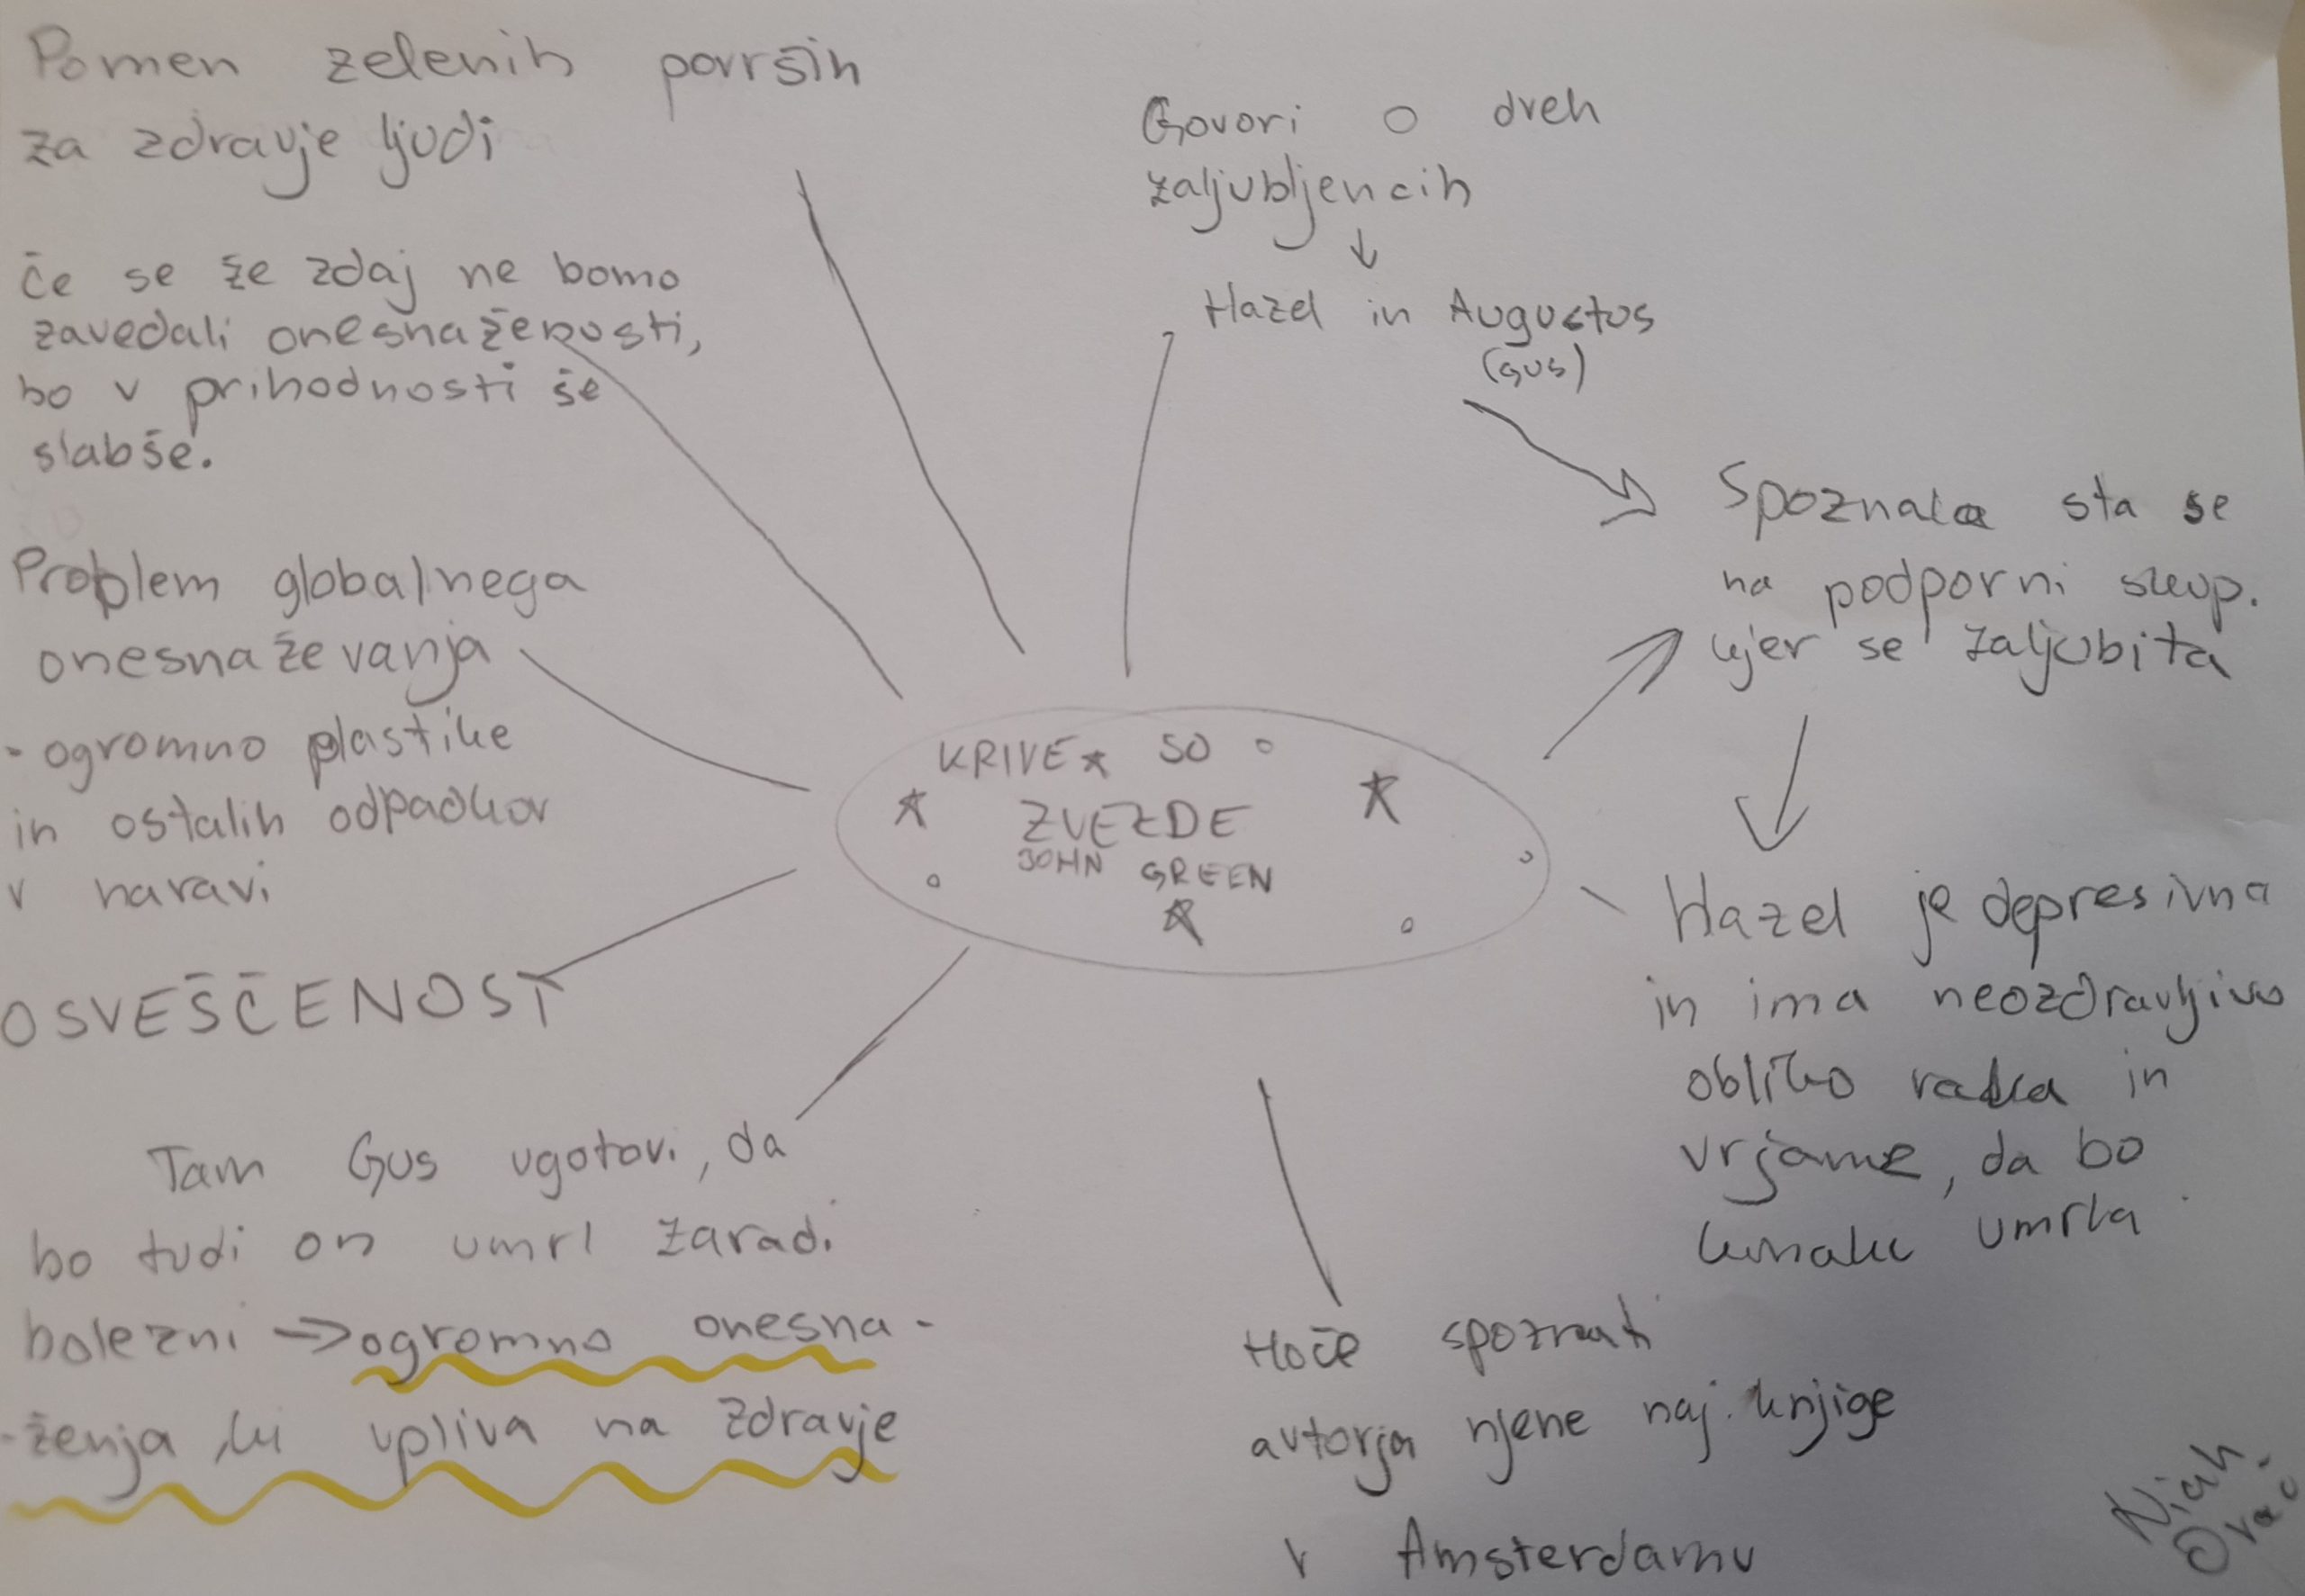 Pomen zelenih površin
za zdravje ljudi
Če se že zdaj ne bomo
zavedali onesnaženosti,
bo v prihodnosti še
slabše.
Problem globalnega
onesnaževanja
- ogromno plastike
in ostalih odpadkov
v naravi
OSVEŠČENOST
Tam Gus ugotovi, da
bo tudi on umrl zaradi
bolezni → ogromno onesna-
-ženja, ki vpliva na zdravje
KRIVE SO
ZVEZDE
JOHN GREEN
Govori o dveh
zaljubljencih
↓
Hazel in Augustus
(Gus)
Spoznala sta se
na podporni skup.
kjer se zaljubita
Hazel je depresivna
in ima neozdravljivo
obliko raka in
vrjame, da bo
kmalu umrla
Hoče spoznati
avtorja njene naj. knjige
v Amsterdamu